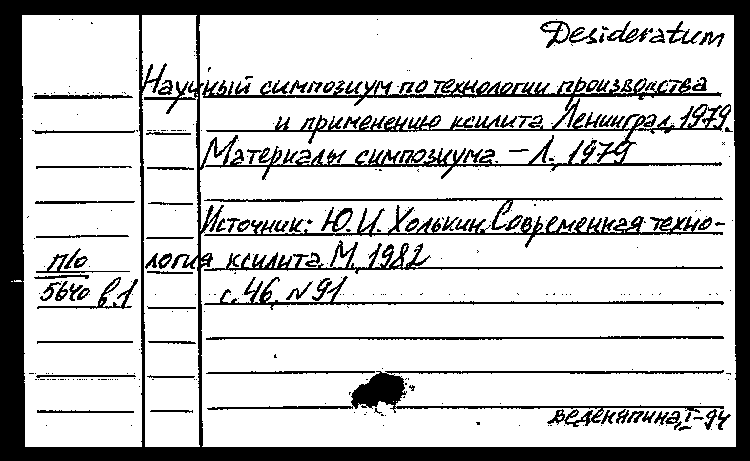 Desideratum
Научный симпозиум по технологии производства
и применению ксилита. Ленинград, 1979.
Материалы симпозиума. – Л., 1979
Источник: Ю.И. Холькин. Современная техно-
логия ксилита. М., 1982
с. 46, №91
п/о
5640 в.1
Веденяпина, I-94